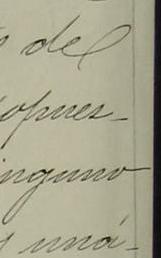 del
opues-
inguno
y uná-